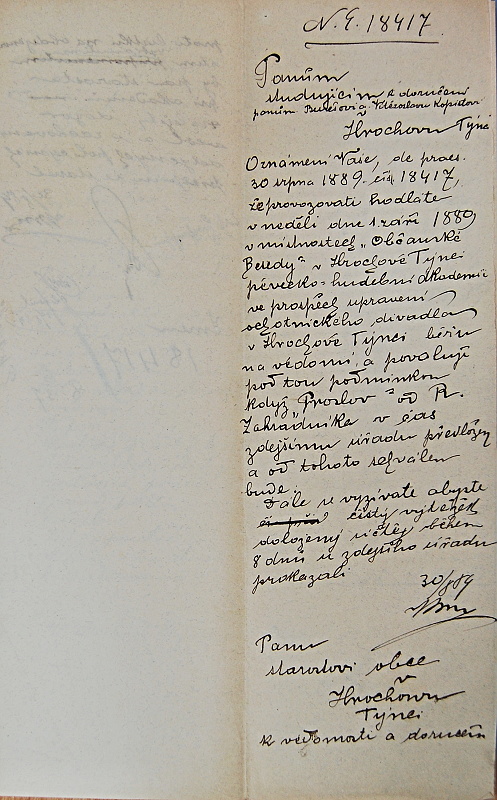 N. E. 18417
Panům
studujícím k doručení
panům Burešovi a Vítězslavu Kopistovi
v Hrochovu Týnci
Oznámení Vaše, de praes.
30 srpna 1889. čís. 18417,
že provozovati hodláte
v neděli dne 1. září 1889
v místnostech „Občanské
Besedy" v Hrochově Týnci
pěvecko-hudební akademii
ve prospěch upravení
ochotnického divadla
v Hrochově Týnci béřu
na vědomí a povoluji
pod tou podmínkou
když „Proslov" od R.
Zahradníka v čas
zdejšímu úřadu předložen
a od tohoto schválen
bude.
Dále se vyzívate abyste
čistý výtěžek
doložený účtěy během
8 dnů u zdejšího úřadu
prokázali
30/8 89
Panu
starostovi obce
v Hrochovu
Týnci
k vědomosti a doručení